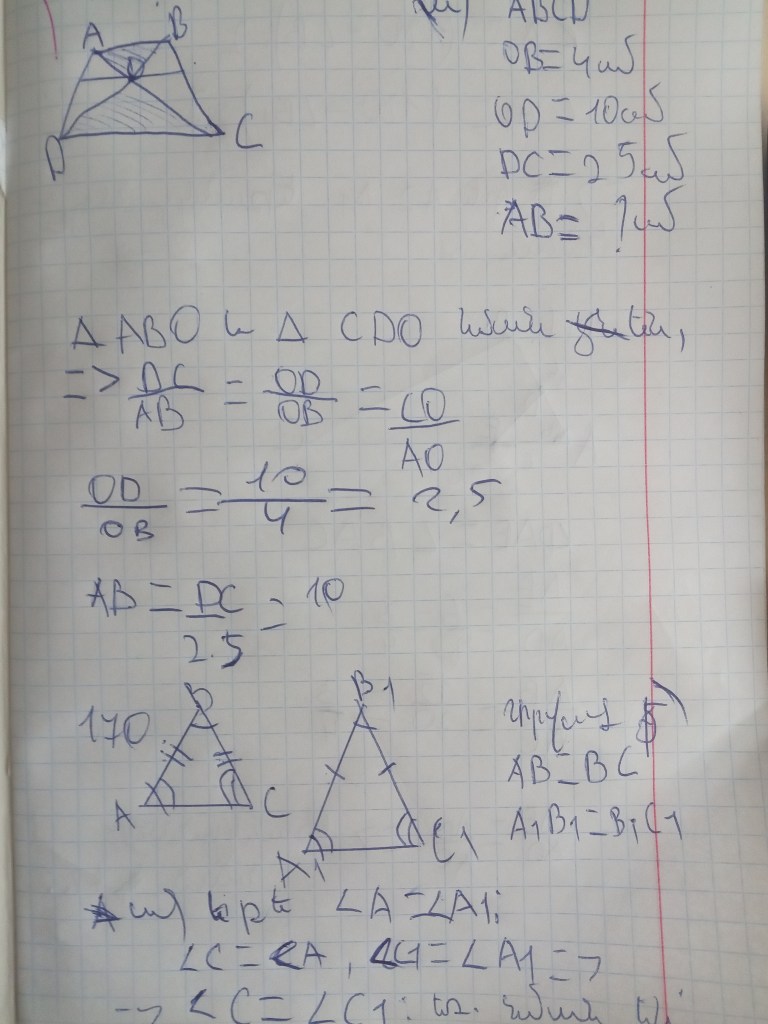 A B
O
D C
ա) ABCD
OB = 4սմ
OD = 10սմ
DC = 25սմ
AB = ?սմ
Δ ABO և Δ CDO նման են,
=> DC/AB = OD/OB = CO/AO
OD/OB = 10/4 = 2,5
AB = DC/2.5 = 10
170. B
A C
B1
A1 C1
AB = BC
A1B1 = B1C1
ա) Եթե ∠A = ∠A1;
∠C = ∠A, ∠C1 = ∠A1 =>
-> ∠C = ∠C1;